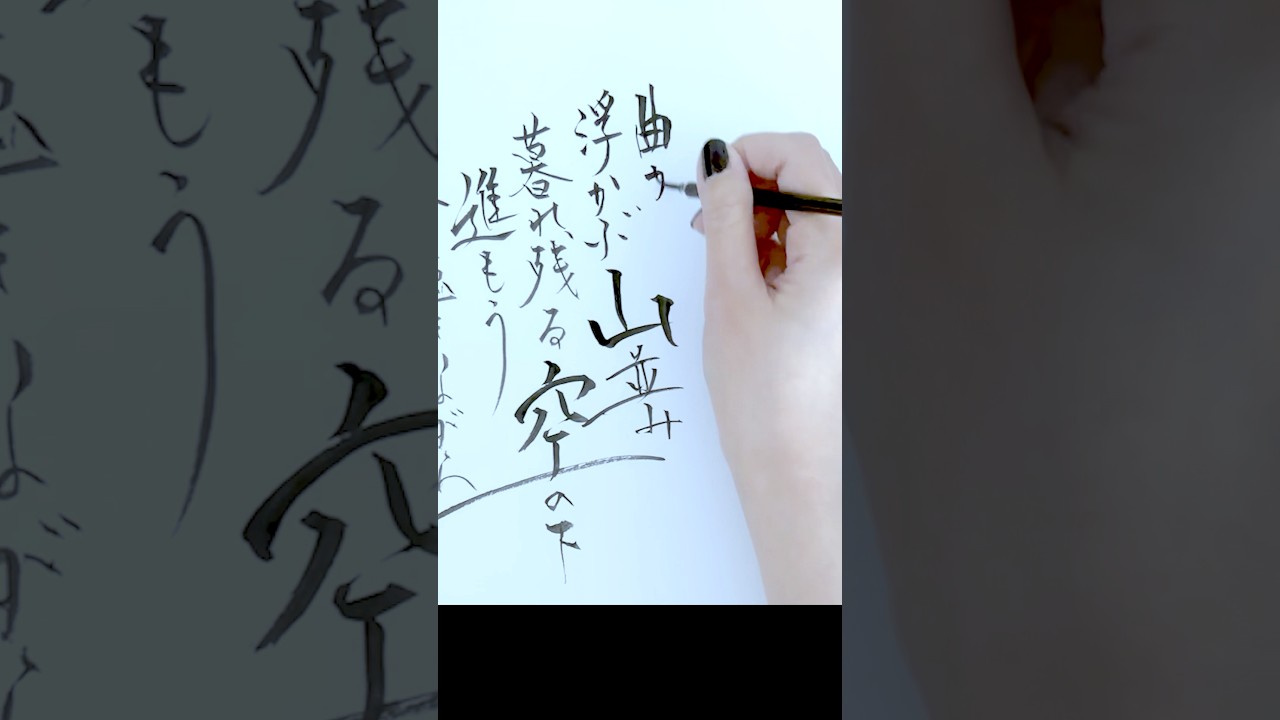 曲
浮かぶ山並み
暮れ残る空の下
進もう